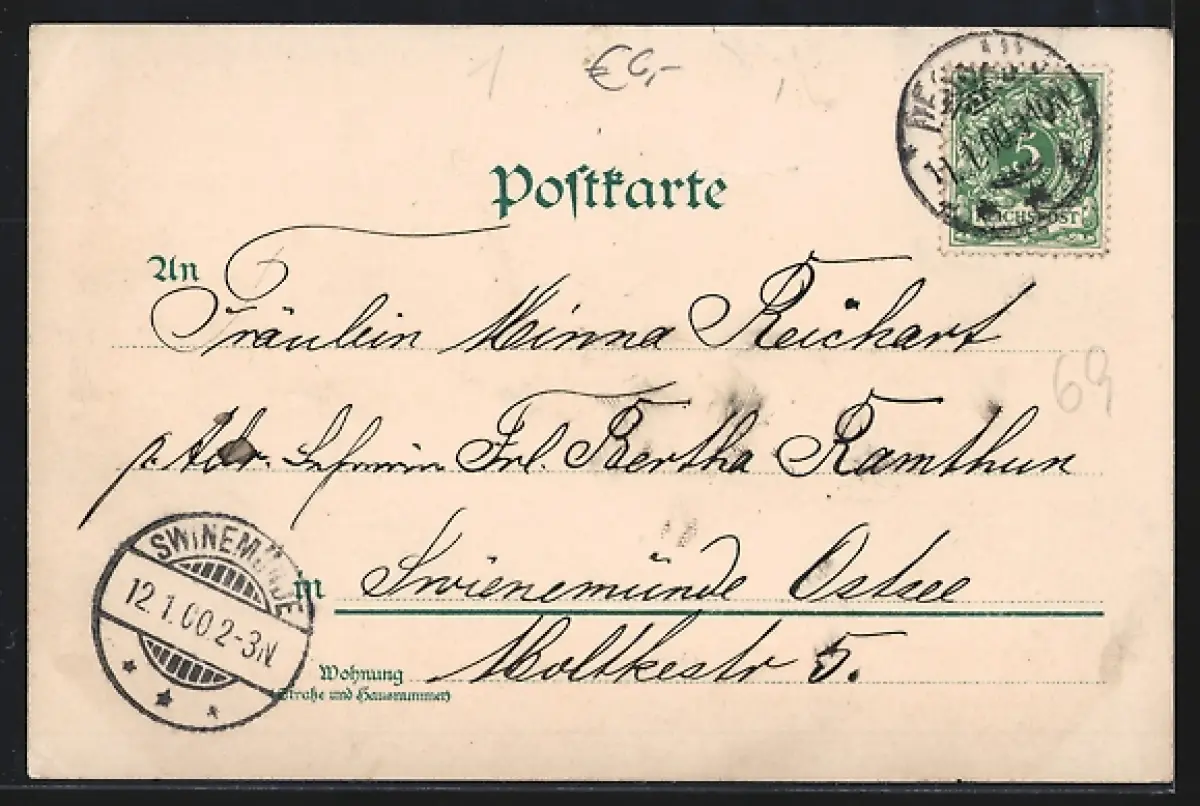 €6,-
Postkarte
5
REICHSPOST
11.1.00.
An
Fräulein Minna Reichart
69
p. Adr. Frl. Bertha Ramthun
SWINEMÜNDE
12.1.00.2-3N.
in Swienemünde Ostsee
Wohnung Moltkestr 5.
(Straße und Hausnummer)